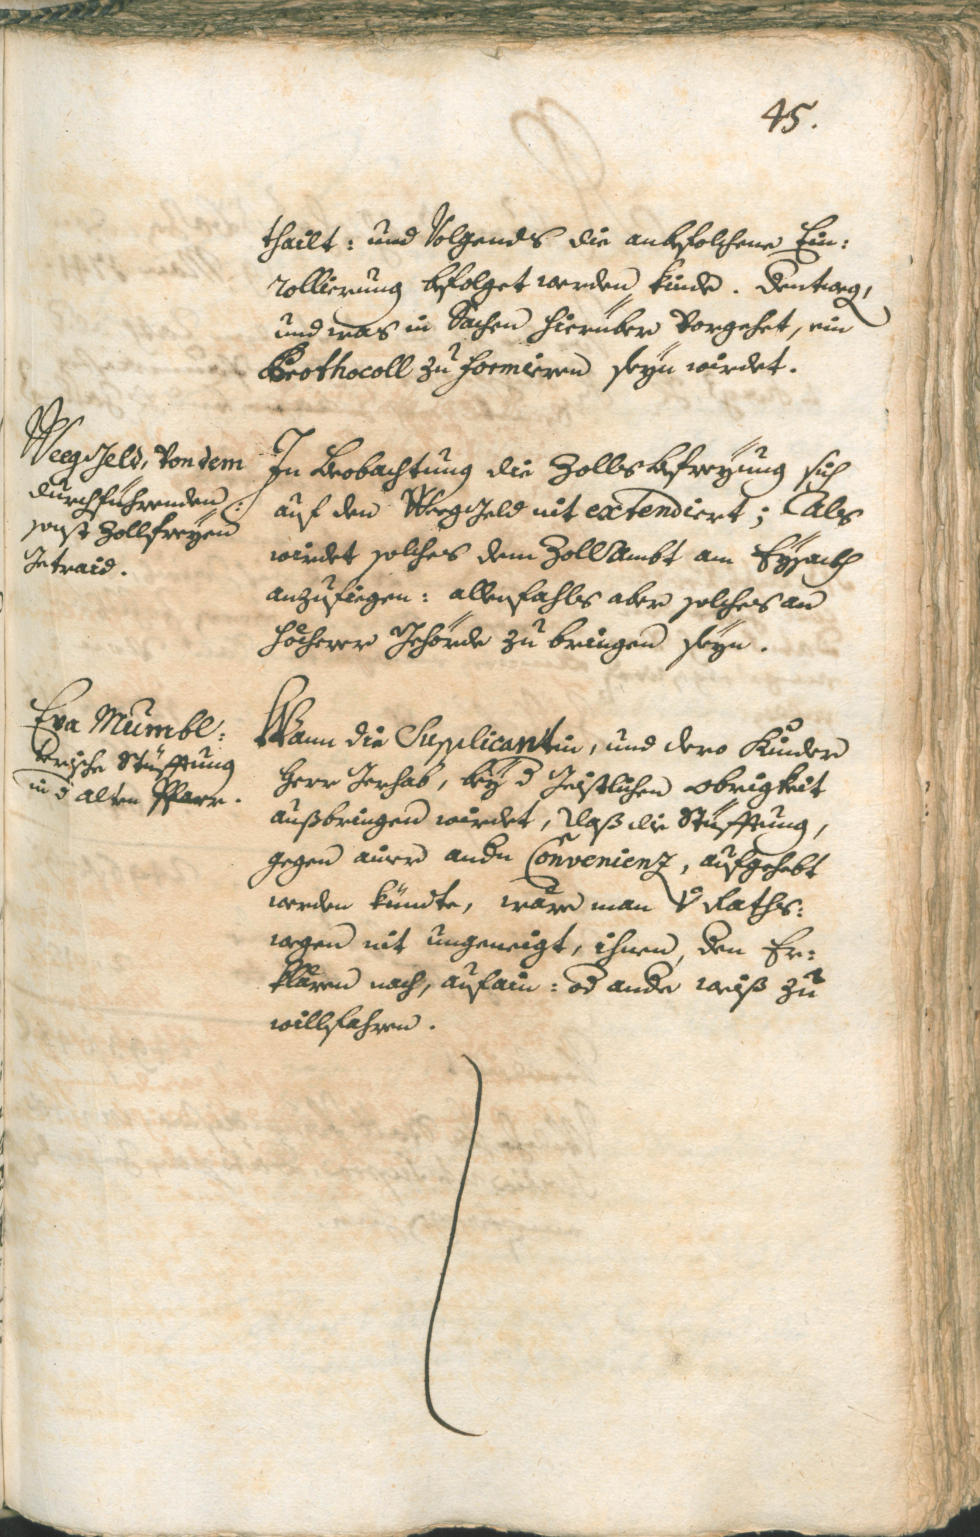 45.
thailt: und Volgends die anbefolchene Ein:
rollierung befolget werden kinde. Dentweg,
und was in Sachen hierüber Vorgehet, ein
Prothocoll zu formieren seyn wirdet.
Weeg Geld, Von dem
durchführenden:
sonst Zollfreyen
Getraid.
In Beobachtung die Zollsbefreyung sich
auf den Weeg Geld nit extendiert; Als
wirdet solches dem Zoll Ambt am Eysackh
anzufiegen: allenfahls aber solches an
höcherer Gehörde zu bringen seyn.
Eva Mumbl:
terische Stüfftung
in d alten Pfarr.
Wann die Supplicantin, und dero Kinder
Herr Gerhab, bey d Geistlichen obrigkeit
außbringen wirdet, daß die Stüfftung,
gegen ainer andn Convenienz, aufgehebt
werden kündte, wäre man V Raths:
wegen nit ungeneigt, ihnen, den Er:
klären nach, auf ain: od ande weiß zu
willfahren.